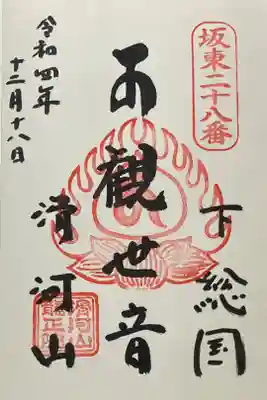 坂東二十八番
下総国
不観世音
滑河山
令和四年
十二月十八日